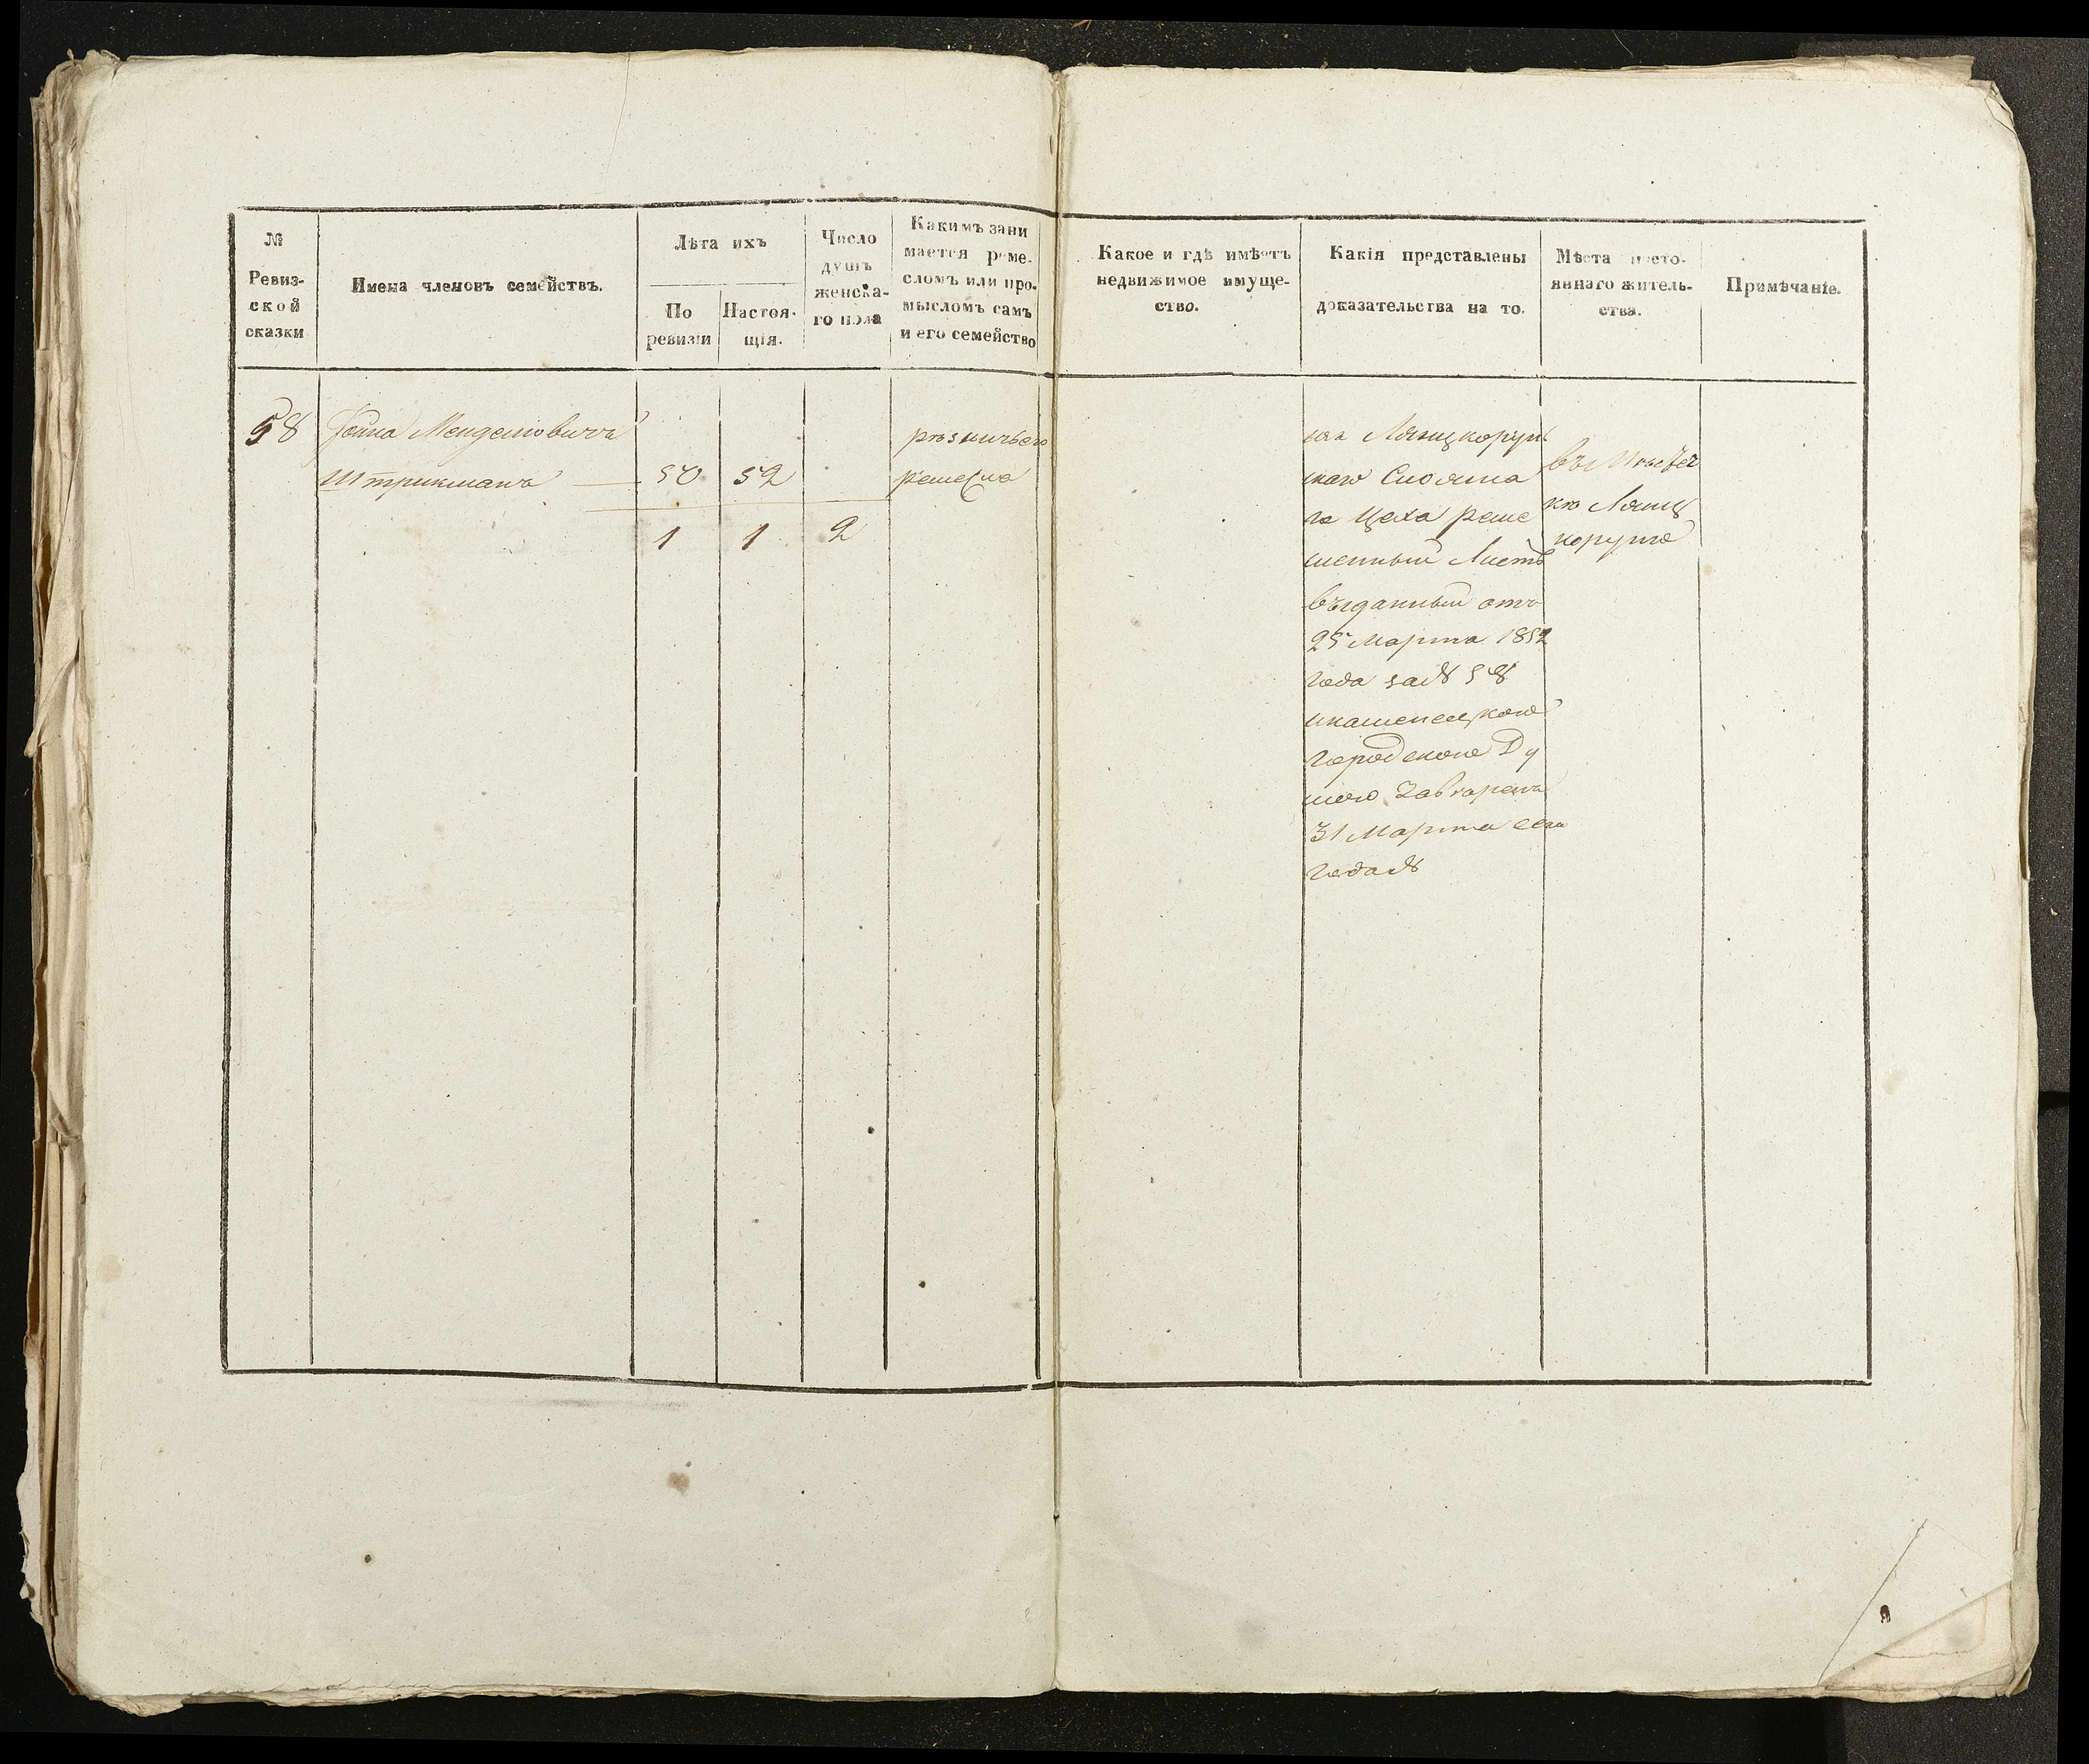 №
Ревиз-
ской
сказки
Имена членовъ семействъ.
Лѣта ихъ
По
ревизіи
Настоя-
щія.
Число
душъ
женска-
го пола
Какимъ зани
мается реме-
сломъ или про-
мысломъ самъ
и его семейство
Какое и гдѣ имѣетъ
недвижимое имуще-
ство.
Какія представлены
доказательства на то.
Мѣста посто-
яннаго житель-
ства.
Примѣчаніе.
58
Менделовичъ
Штрикманъ 50 52
1 1 2
рѣзничьего
ремесла
Лянцкорун
скаго
го Цеха реме
сленный Листъ
выданный отъ
25 Марта 1852
года за № 58
городскою Ду
мою
31 Марта сего
года №
въ Мѣстеч
кѣ Лянц
корунѣ